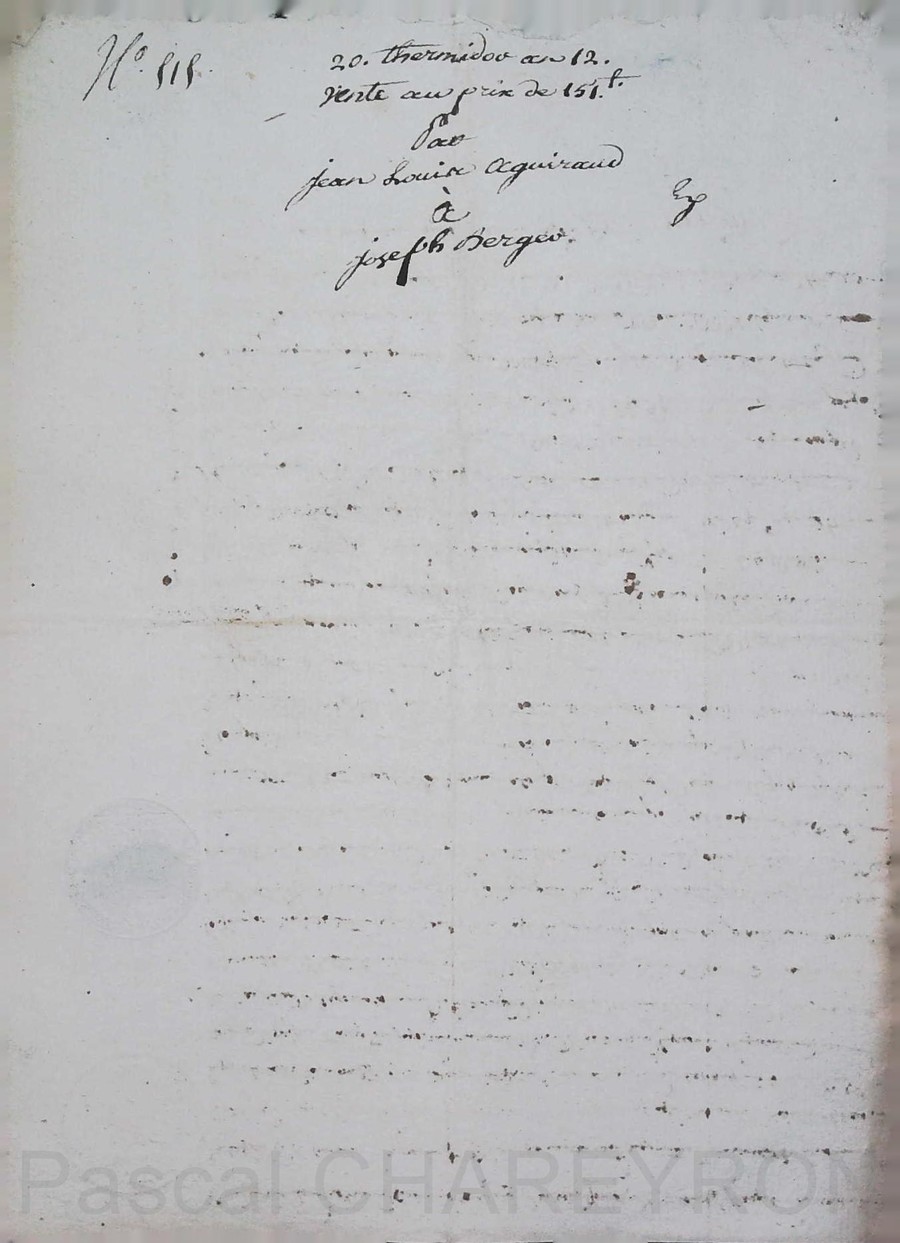 N.° 515.
20. thermidor an 12.
Vente au prix de 151.ᵗ.
Par
jean Louis Aguiraud
à
Exp
joseph Berger.
Pascal CHAREYRON